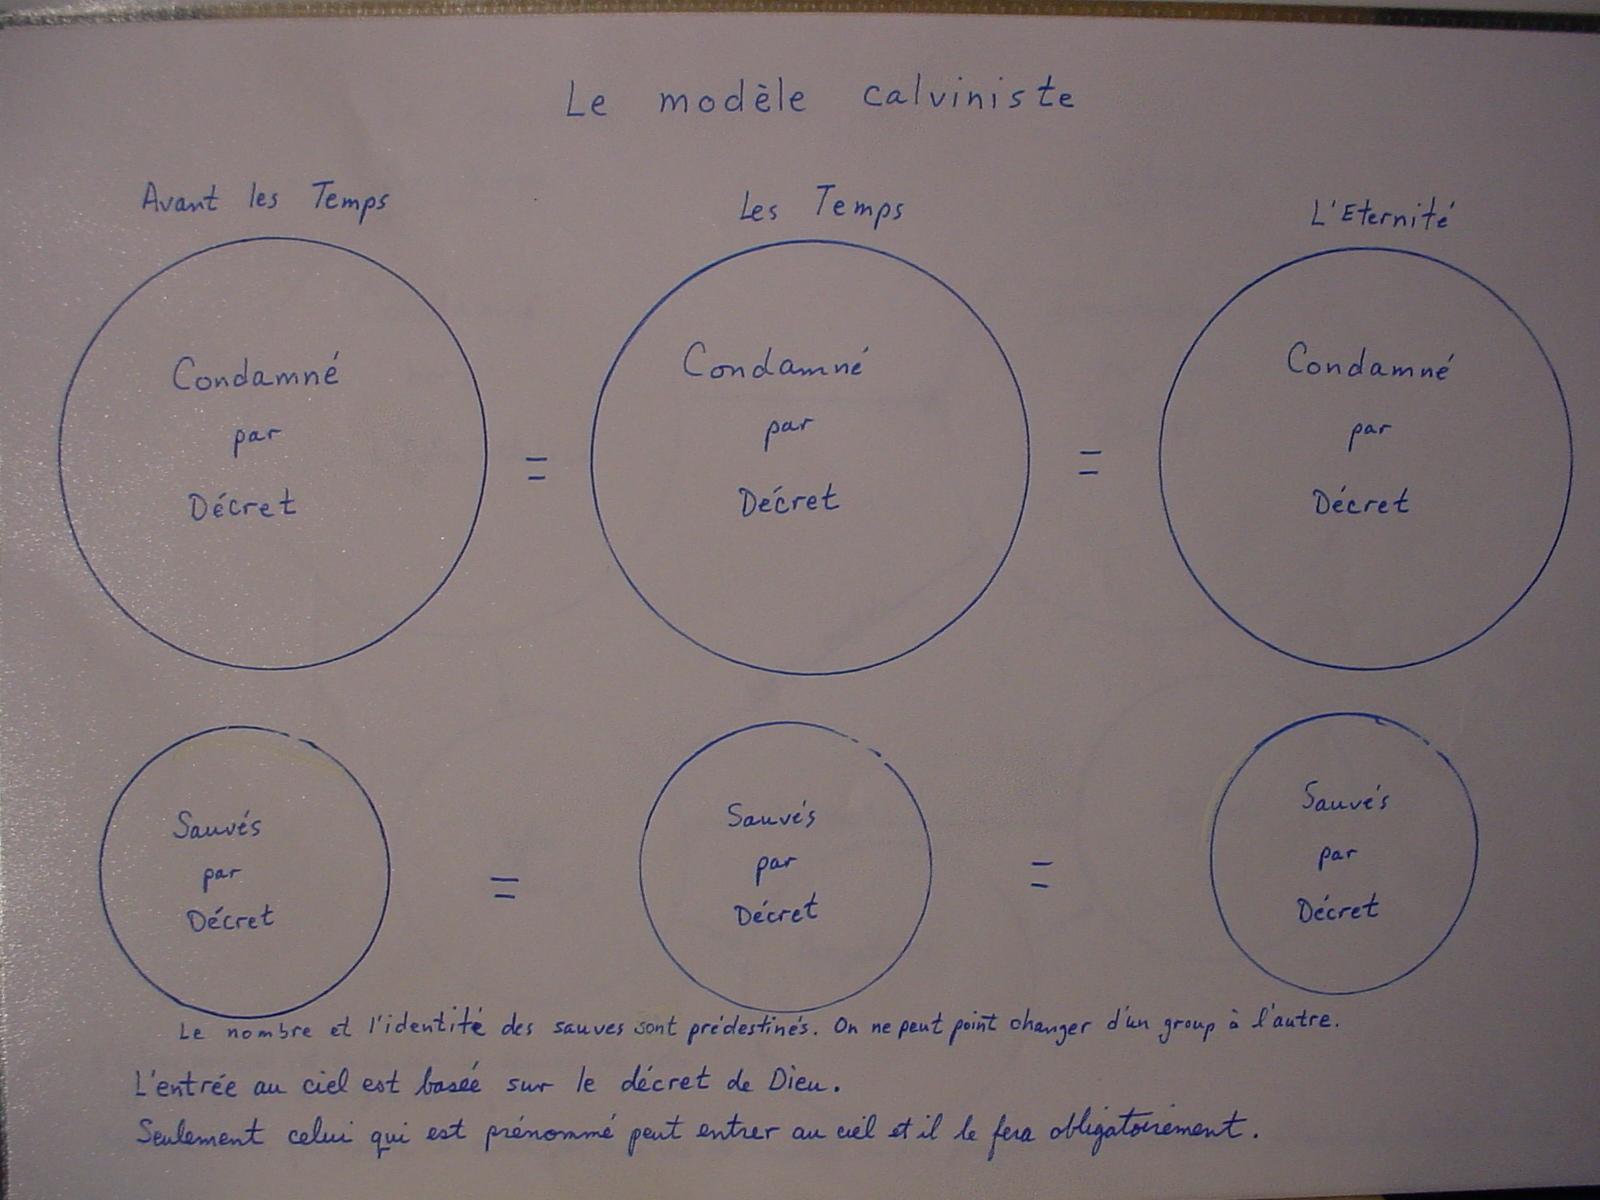 Le modèle calviniste
Avant les Temps
Les Temps
L'Eternité
Condamné
par
Décret
=
Condamné
par
Décret
=
Condamné
par
Décret
Sauvés
par
Décret
=
Sauvés
par
Décret
=
Sauvés
par
Décret
Le nombre et l'identité des sauves sont prédestinés. On ne peut point changer d'un group à l'autre.
L'entrée au ciel est baseé sur le décret de Dieu.
Seulement celui qui est prénommé peut entrer au ciel et il le fera obligatoirement.